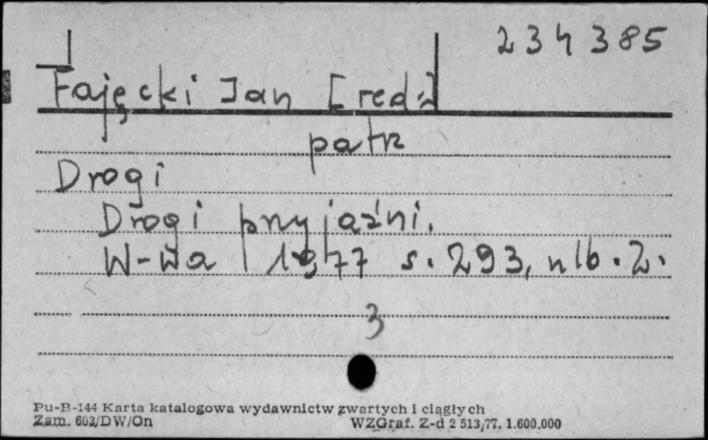 234385
Fajęcki Jan [red.]
patrz
Drogi
Drogi przyjaźni.
W-wa 1977 s. 293, nlb. 2.
3
Pu-B-144 Karta katalogowa wydawnictw zwartych i ciągłych
Zam. 602/DW/On WZGraf. Z-d 2 513/77. 1.600.000